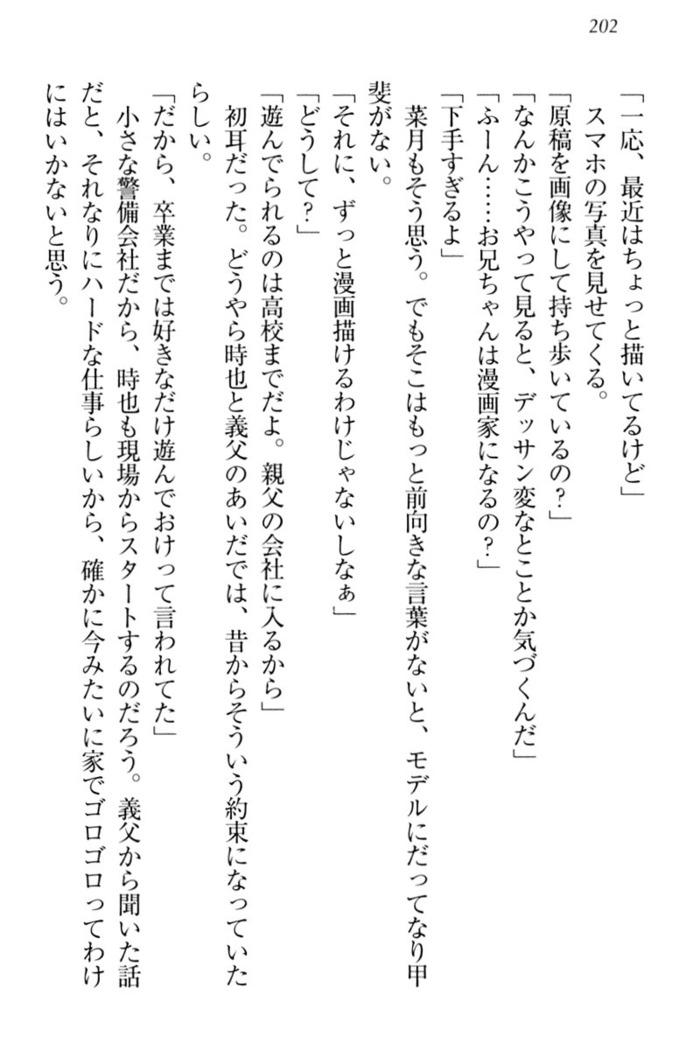 202
「一応、最近はちょっと描いてるけど」
スマホの写真を見せてくる。
「原稿を画像にして持ち歩いているの？」
「なんかこうやって見ると、デッサン変なとことか気づくんだ」
「ふーん……お兄ちゃんは漫画家になるの？」
「下手すぎるよ」
菜月もそう思う。でもそこはもっと前向きな言葉がないと、モデルにだってなり甲
斐がない。
「それに、ずっと漫画描けるわけじゃないしなぁ」
「どうして？」
「遊んでられるのは高校までだよ。親父の会社に入るから」
初耳だった。どうやら時也と義父のあいだでは、昔からそういう約束になっていた
らしい。
「だから、卒業までは好きなだけ遊んでおけって言われてた」
小さな警備会社だから、時也も現場からスタートするのだろう。義父から聞いた話
だと、それなりにハードな仕事らしいから、確かに今みたいに家でゴロゴロってわけ
にはいかないと思う。